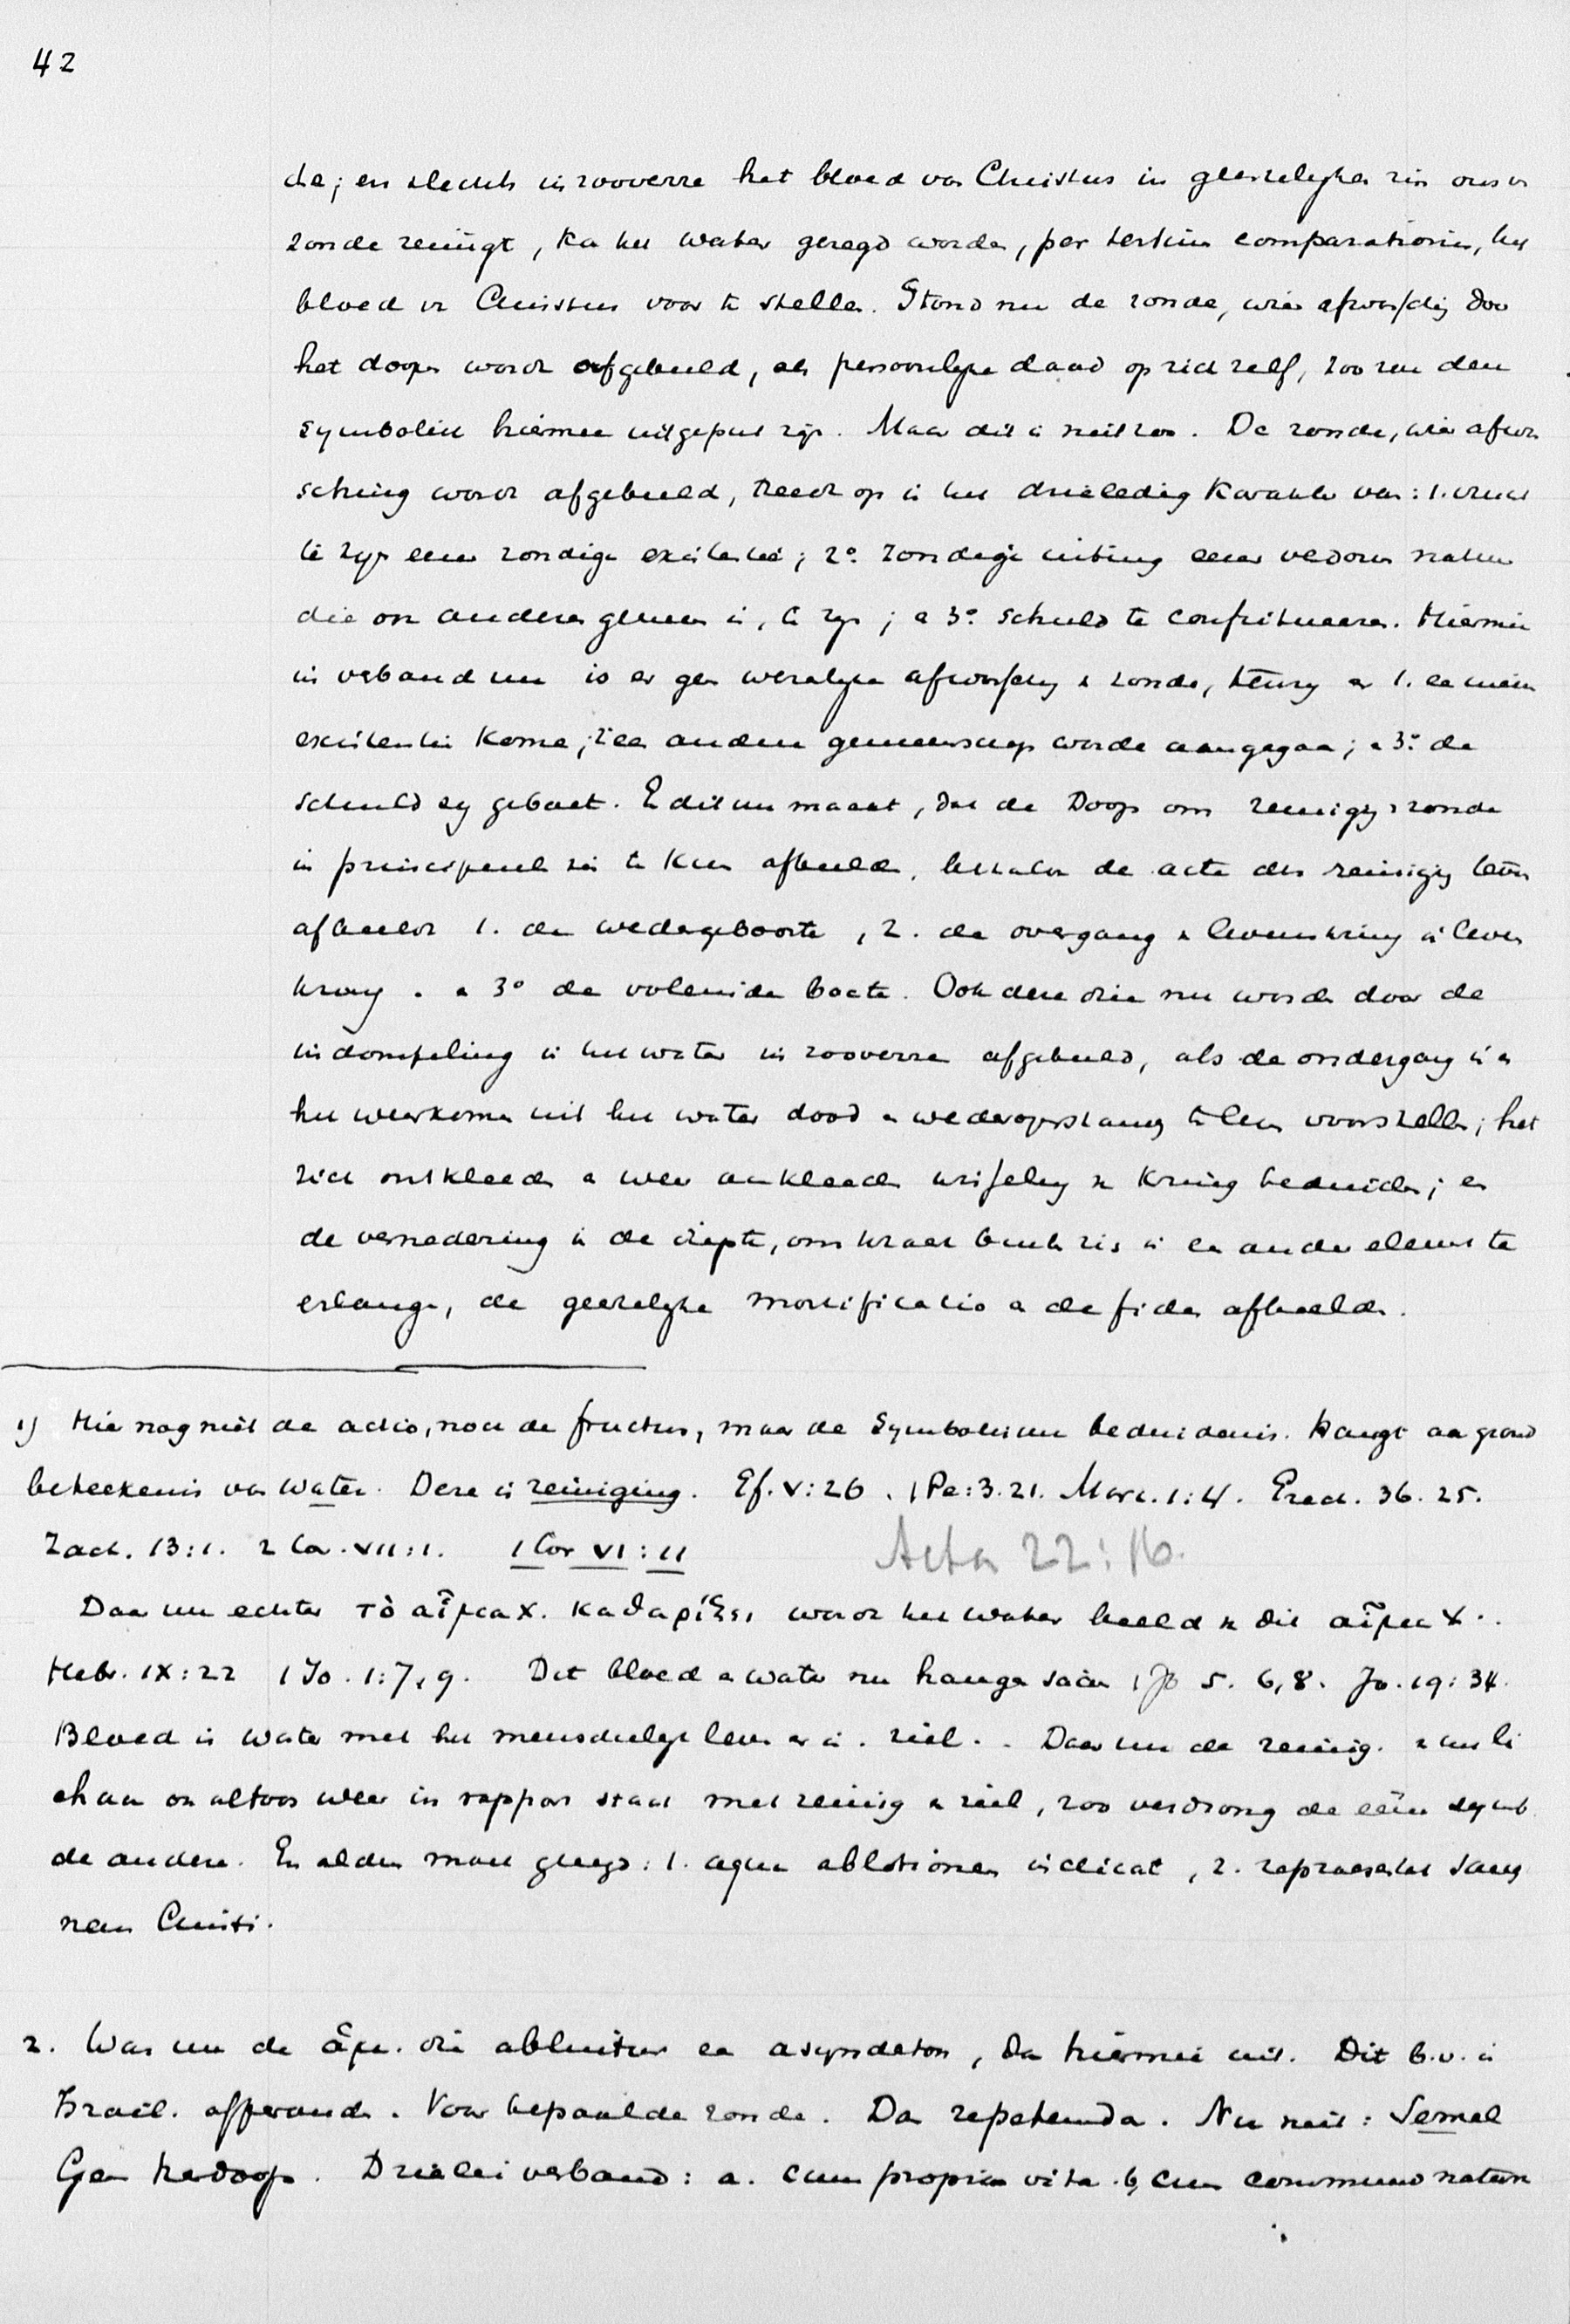 42
de; en slechts in zooverre het bloed van Christus in geestelyken zin ons v
zonde reinigt, ka het water gezegd worden, per tertium comparationis, het
bloed v Christus voor te stellen. Stond nu de zonde, wier afwassching door
het doopen wordt afgebeeld, als persoonlyke daad op zich zelf, zoo zou den
symboliek hiermee uitgeput zyn. Maar dit is niet zoo. De zonde, wier afwas
sching wordt afgebeeld, treedt op in het drieledig karakter van: 1. vrucht
te zyn eener zondige existentie; 2º. zondige uiting eener verdorven natuur
die on anderen gemeen is, te zyn; e 3º. schuld te constitueeren. Hiermee
in verband nu is er geen werkelyke afwassching v zonde, tenzy er 1. ee nieuwe
existentie kome; 2º ee andere gemeenschap worde aangegaan; e 3º. de
schuld zy geboet. E dit nu maakt, dat de Doop om reiniging v zonde
in principieelen zin te kunnen afbeelden, behalve de acte der reiniging tevens
afbeeldt 1. de wedergeboorte, 2. de overgang v levenskring in levens
kring. e 3º de voleinde boete. Ook deze drie nu worden door de
indompeling in het water in zooverre afgebeeld, als de ondergang in e
het weerkomen uit het water dood e wederopstanding te leven voorstellen; het
zich ontkleeden e weer ankleeden wisseling v kring beduiden; en
de vernedering in de diepte, om kracht buiten zich in een ander element te
erlangen, de geestelyke mortificatio e de fides afbeelden.
1) Hier nog niet de actio, noch de fructus, maar de Symbolische beduidenis. Hangt aa grond
beteekenis van water. Deze is reiniging. Ef. V:26. 1 Pe: 3.21. Marc. 1:4. Ezech. 36. 25.
Zach. 13:1. 2 Cor. VII:1. 1 Cor VI:11
Acta 22:16.
Daar nu echter τὸ αἷμα Χ. καθαρίζει wordt het water beeld v dit αἷμα Χ..
Hebr. IX:22 1 Jo. 1:7,9. Dit bloed e water nu hangen saam 1 Jo 5. 6,8. Jo. 19:34.
Bloed is water met het menschelyk leven er in. ziel.. Daar nu de reinig. v het li
chaam on altoos weer in rapport staat met reinig v ziel, zoo verdrong de eene symb
de andere. En alden moet gezegd: 1. aqua ablotionem indicat, 2. repraesentat sangui
nem Christi.
2. Was nu de ἁμ. die abluitur ee asyndeton, dan hiermee uit. Dit b.v. in
Israël. offerande. Voor bepaalde zonde. Dan repetenda. Nu niet: Semel
Geen herdoop. Drieerlei verband: a. cum propria vita. b, cum communi natura